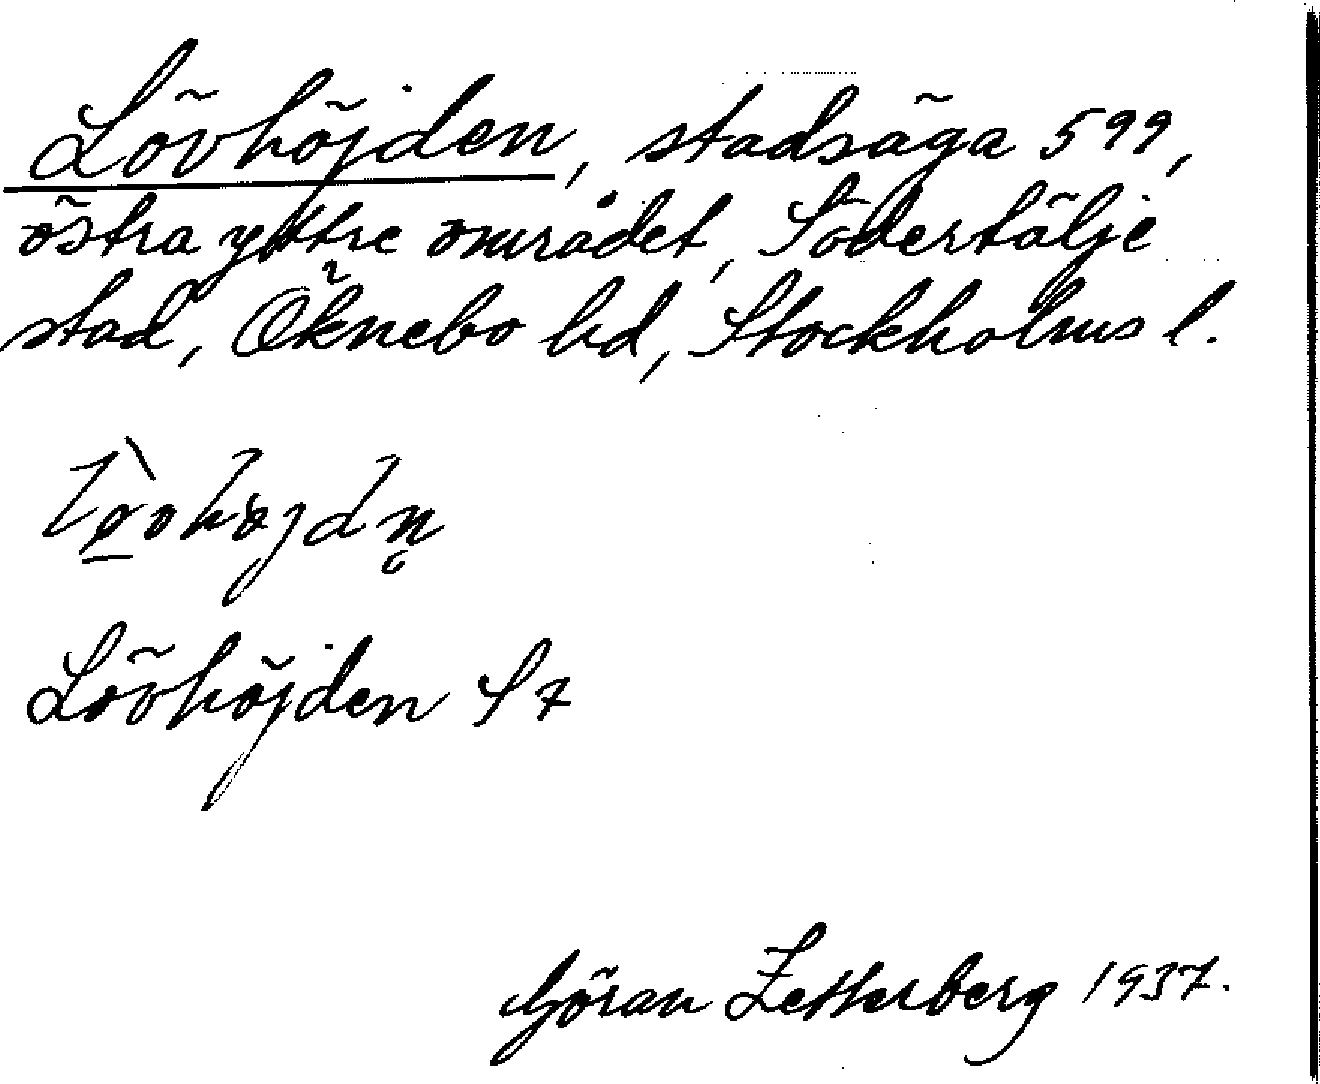 Lövhöjden, stadsäga 599,
östra yttre området, Södertälje
stad, Öknebo hd, Stockholms l.
Lövhöjden
Göran Zetterberg 1937.